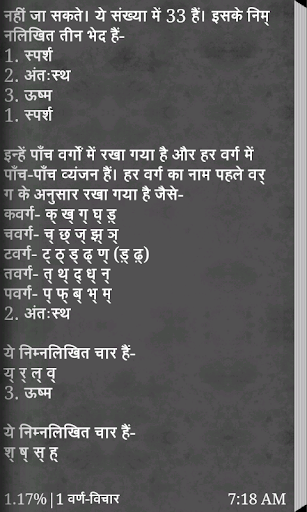 नहीं जा सकते। ये संख्या में 33 हैं। इसके निम्
नलिखित तीन भेद हैं-
1. स्पर्श
2. अंतःस्थ
3. ऊष्म
1. स्पर्श
इन्हें पाँच वर्गों में रखा गया है और हर वर्ग में
पाँच-पाँच व्यंजन हैं। हर वर्ग का नाम पहले वर्
ग के अनुसार रखा गया है जैसे-
कवर्ग- क् ख् ग् घ् ड़्
चवर्ग- च् छ् ज् झ् ञ्
टवर्ग- ट् ठ् ड् ढ् ण् (ड़् ढ़्)
तवर्ग- त् थ् द् ध् न्
पवर्ग- प् फ् ब् भ् म्
2. अंतःस्थ
ये निम्नलिखित चार हैं-
य् र् ल् व्
3. ऊष्म
ये निम्नलिखित चार हैं-
श् ष् स् ह्
1.17% | 1 वर्ण-विचार 7:18 AM